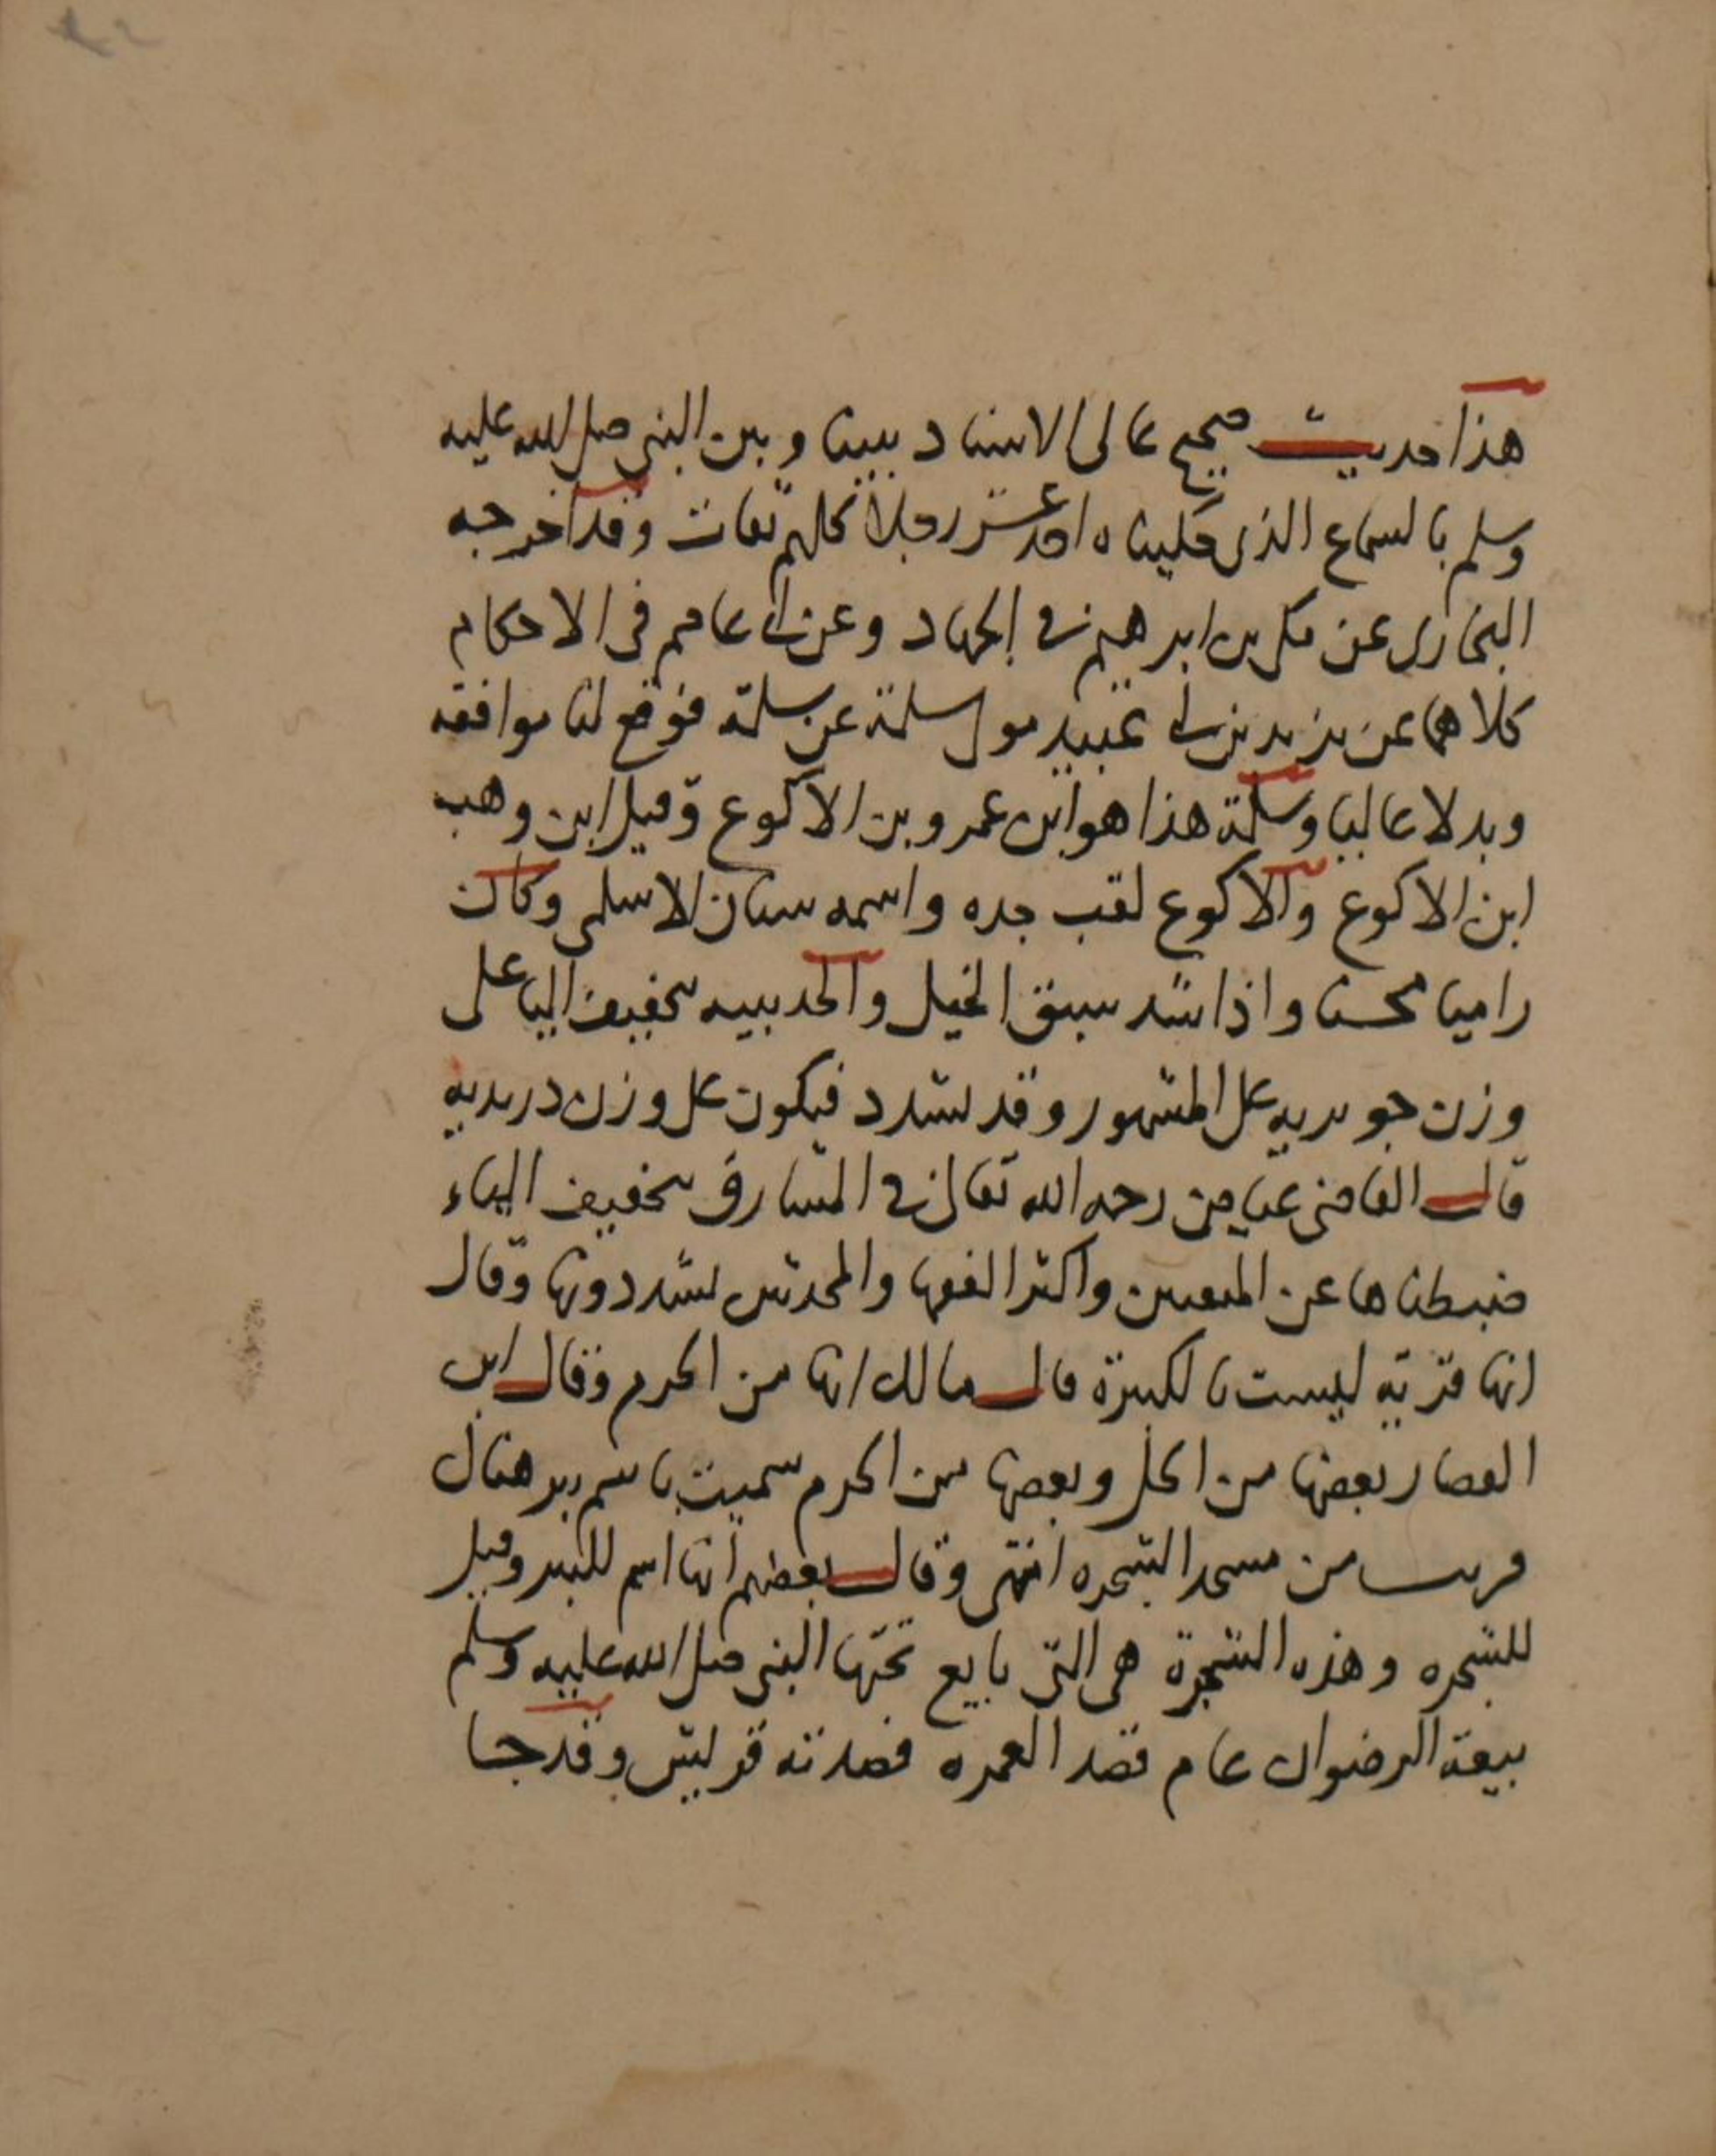 هذا حديث صحيح عالى الاسناد بيننا وبين النبى صلى الله عليه
وسلم بالسماع الذى حكيناه احد عشر رجلا كلهم ثقات وقد اخرجه
البخارى عن مكى بن ابرهيم فى الجهاد وعن ابى عاصم فى الاحكام
كلاهما عن يزيد بن ابى عبيد مولى سلمة عن سلمة فوقع لنا موافقه
وبدلا عاليا وسلمة هذا هو ابن عمرو بن الاكوع وقيل ابن وهب
ابن الاكوع والاكوع لقب جده واسمه سنان الاسلمى وكان
راميا محسنا واذا شد سبق الخيل والحديبيه بتخفيف اليا على
وزن جويريه على المشهور وقد تشدد فيكون على وزن دريديه
قال القاضى عياض رحمه الله تعالى فى المشارق بتخفيف الياء
ضبطناها عن المتقنين واكثر الفقها والمحدثين يشددونها وقال
انها قرية ليست بالكبيرة قال مالك انها من الحرم وقال ابن
القصار بعضها من الحل وبعضها من الحرم سميت باسم بير هناك
قريب من مسجد الشجره انتهى وقال بعضهم انها اسم للبير وقيل
للشجره وهذه الشجرة هى التى بايع تحتها النبى صلى الله عليه وسلم
بيعة الرضوان عام قصد العمره فصدته قريش وقد جا